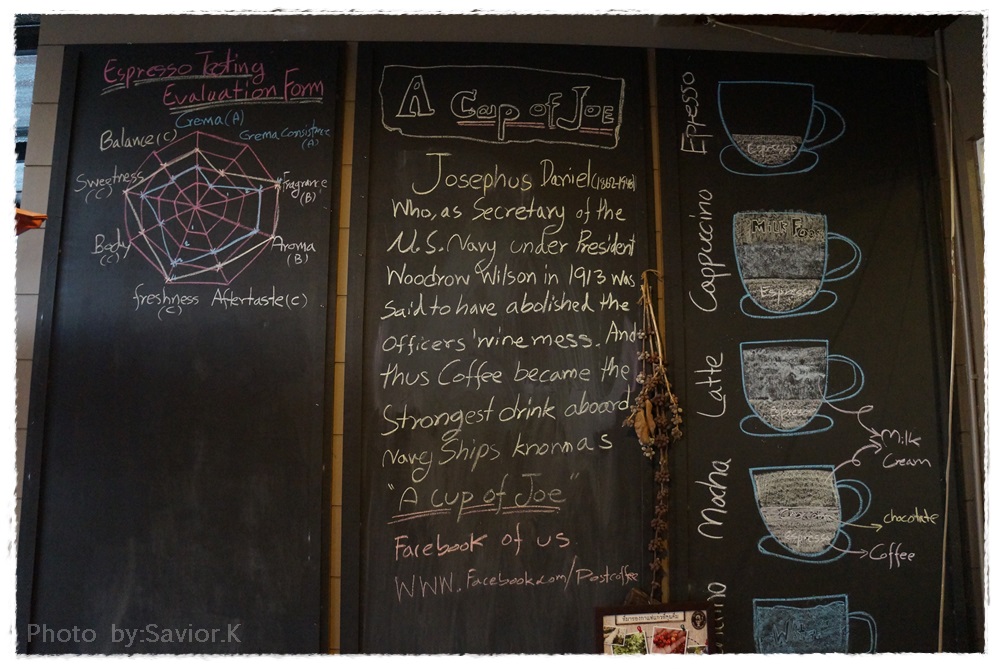 Espresso Testing
Evaluation Form
Crema (A)
Crema Consistence
(A)
Fragrance
(B)
Aroma
(B)
Aftertaste (C)
freshness
(C)
Body
(C)
Sweetness
(C)
Balance (C)
A Cup of JOE
Josephus Daniel (1862-1948)
Who, as Secretary of the
U.S. Navy under President
Woodrow Wilson in 1913 was
Said to have abolished the
Officers' wine mess. And
thus Coffee became the
Strongest drink aboard
Navy Ships known as
"A cup of Joe"
Facebook of us
WWW.Facebook.com/Postcoffee
Epresso
Espresso
Cappucino
Milk
Espresso
Latte
Espresso
Milk
Cream
Mocha
chocolate
Coffee
Photo by:Savior.K